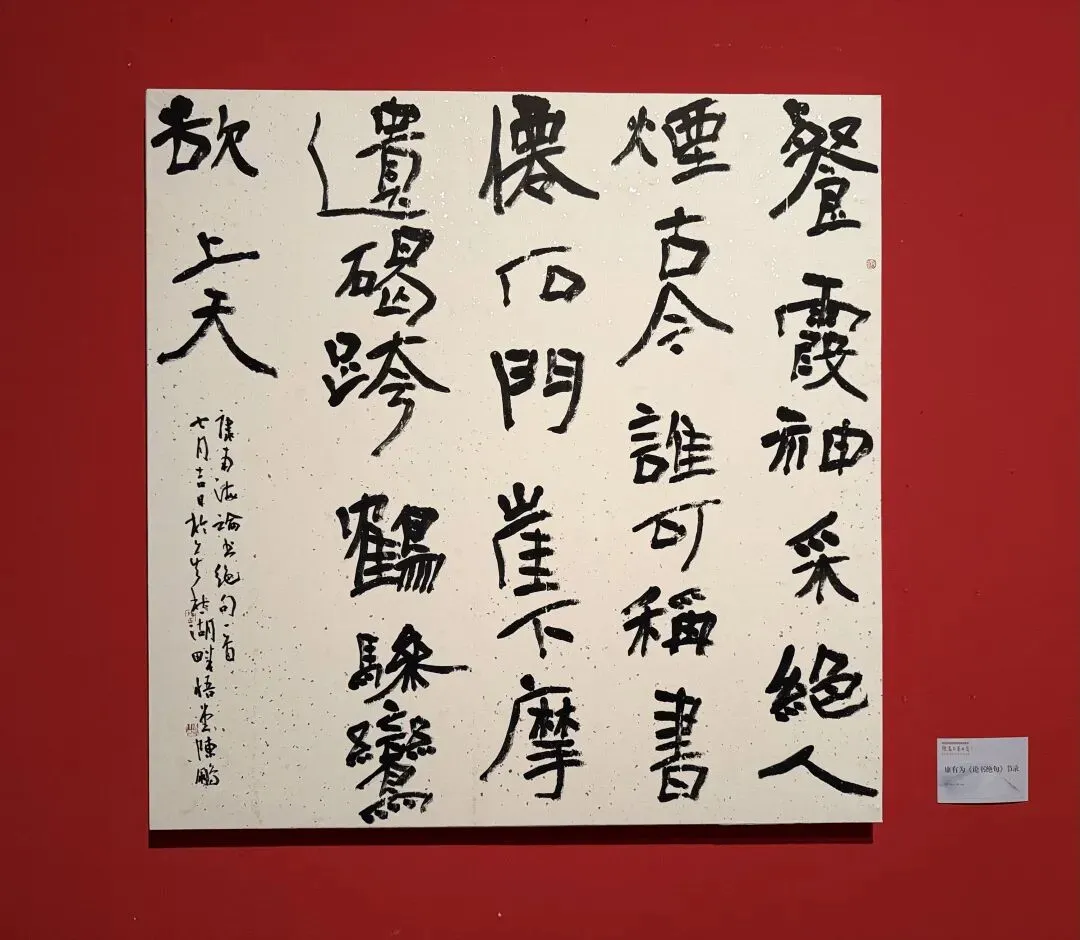 餐霞神采絕人
煙古今誰可稱書
僊石門崖下摩
遺碣跨鶴驂鸞
欲上天
康南海論書絕句一首
七月吉日於 湖畔悟堂陳鵬
康有为《论书绝句》节录